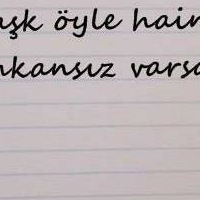 aşk öyle hain
mkansız varsa